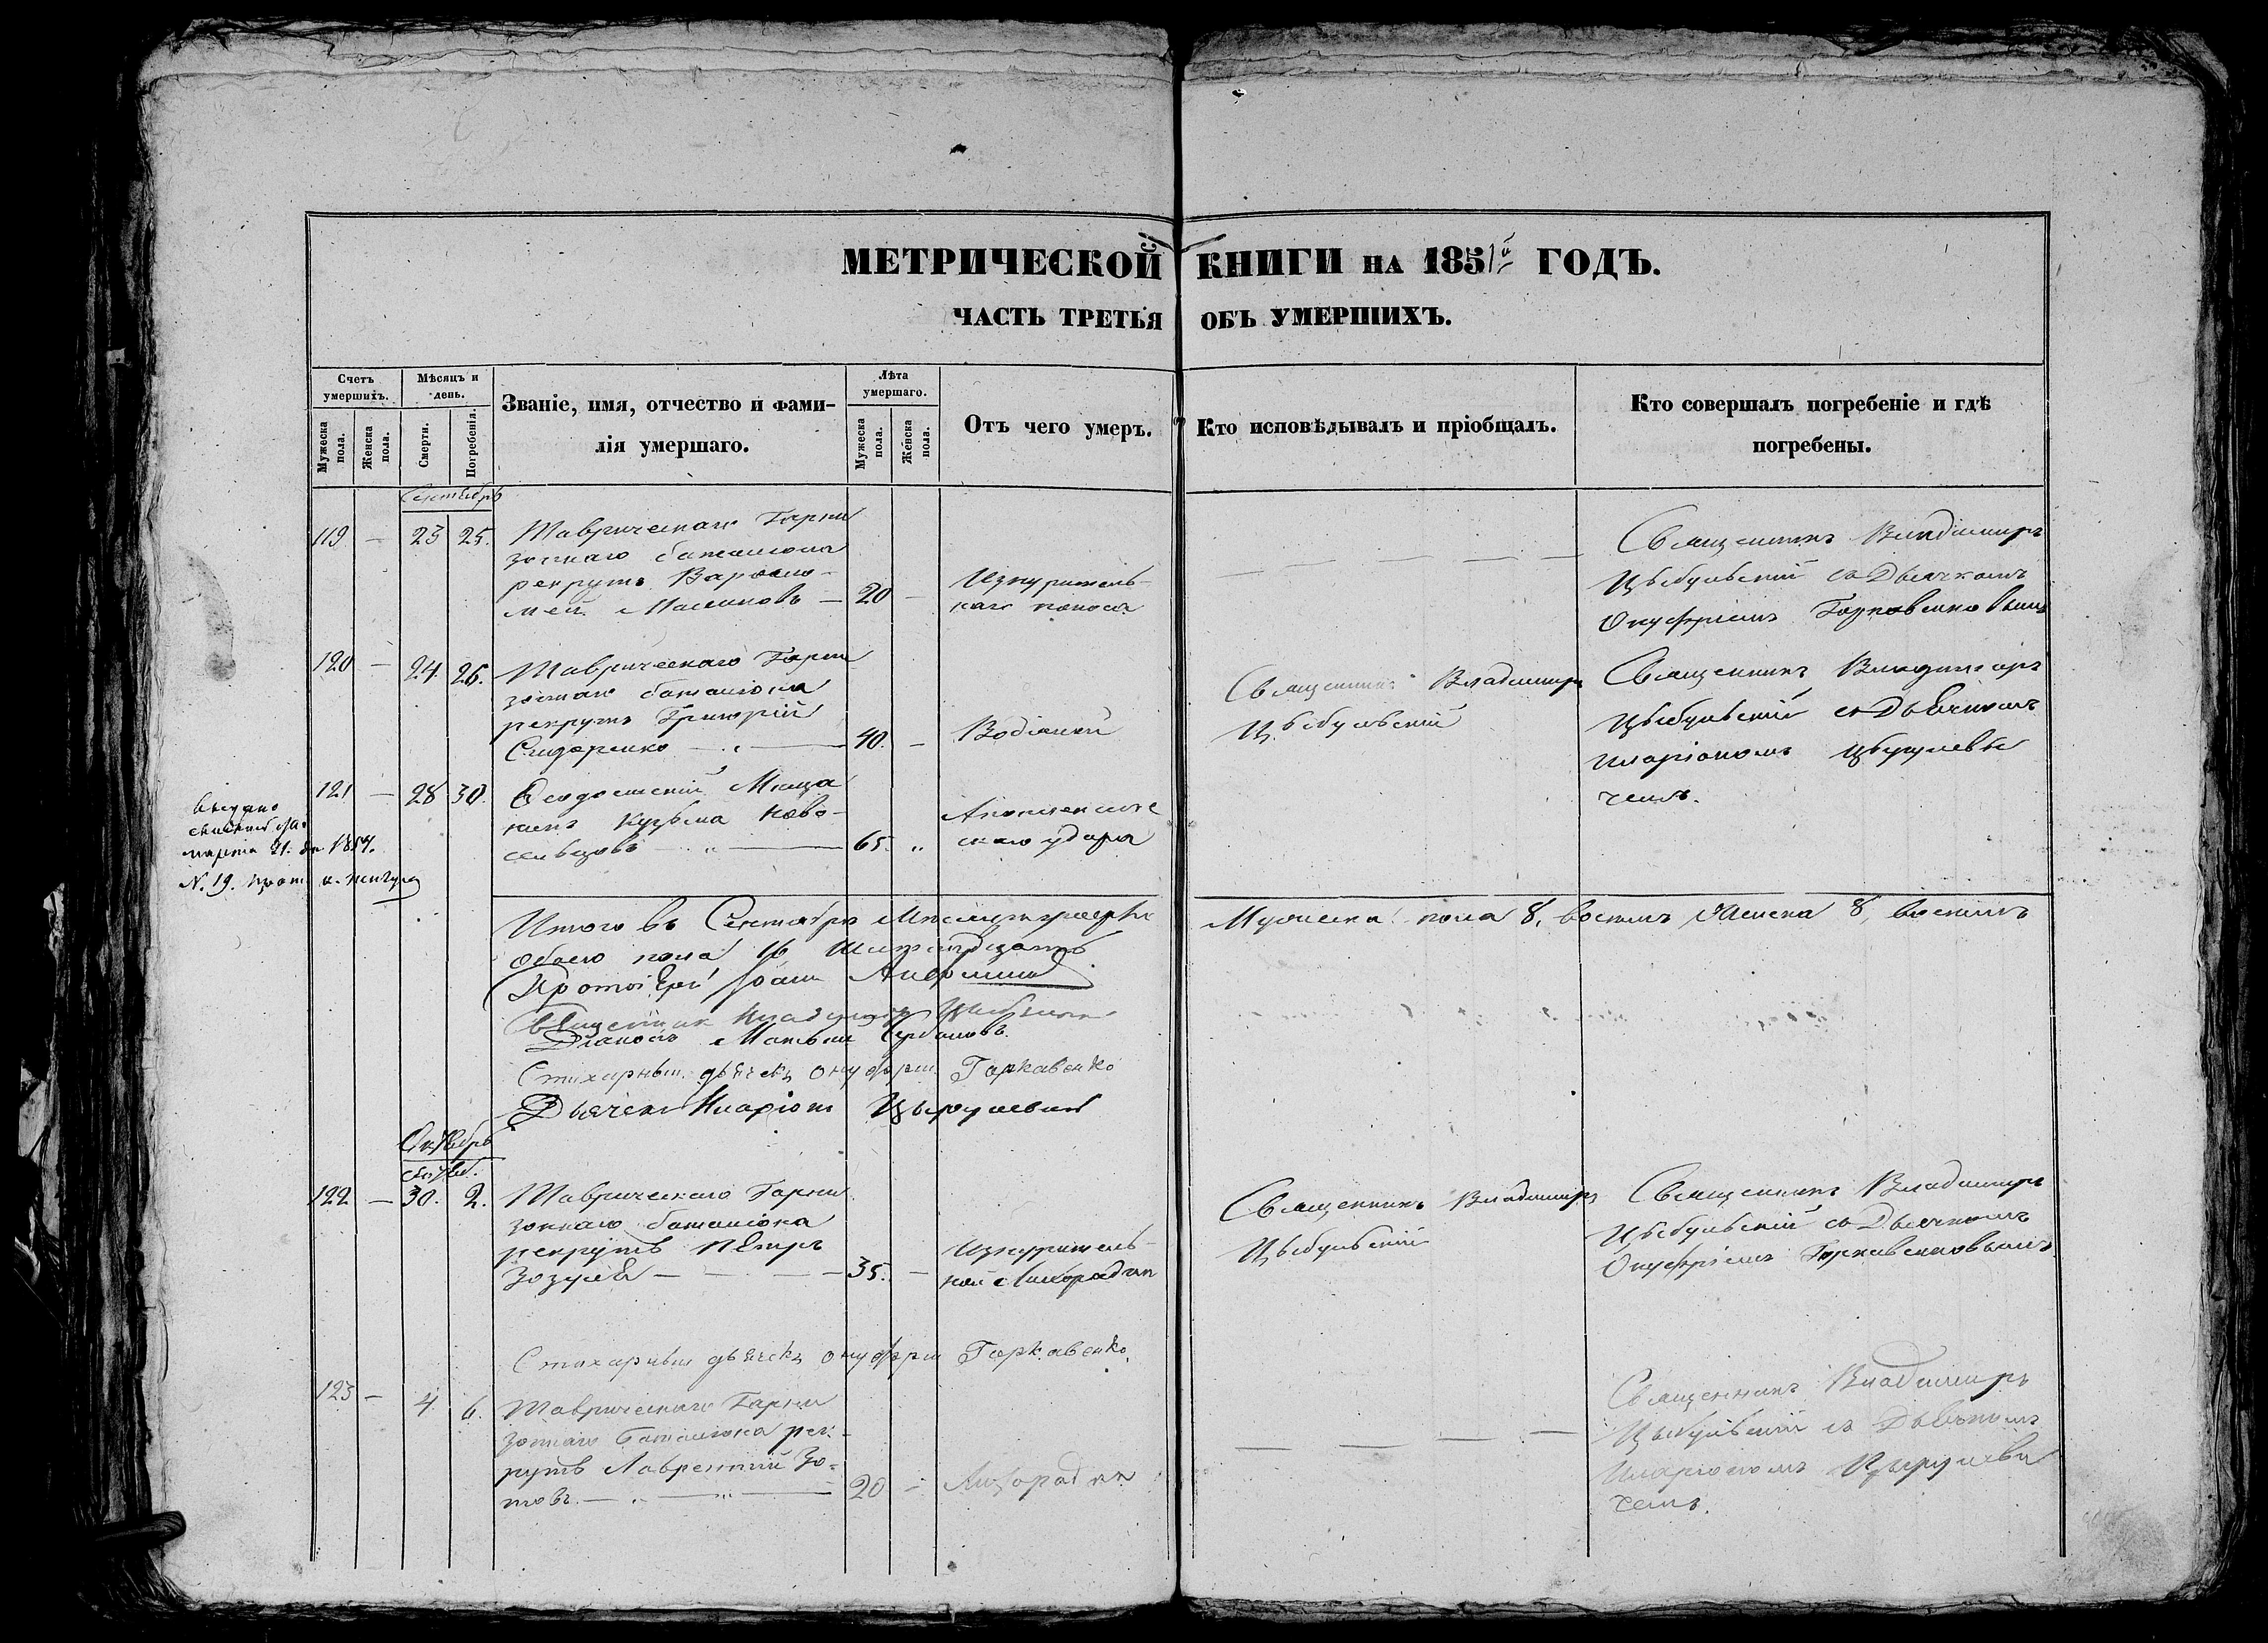 МЕТРИЧЕСКОЙ КНИГИ НА 1851й ГОДЪ.
ЧАСТЬ ТРЕТЬЯ ОБЪ УМЕРШИХЪ.
Счетъ умершихъ.
Мужеска пола.
Женска пола.
Мѣсяцъ и день.
Смерти.
Погребенія.
Званіе, имя, отчество и фами-
лія умершаго.
Лѣта умершаго.
Мужеска пола.
Женска пола.
Отъ чего умеръ.
Кто исповѣдывалъ и пріобщалъ.
Кто совершалъ погребеніе и гдѣ
погребены.
Сентябрь
119 — 23 25. Таврическаго Гарни
зоннаго баталіона
рекрутъ Варѳоло-
мей — 20 —
Изнурительн
наго поноса
Священникъ Владимиръ
Цыбульскій съ Дьячкомъ
Онуфріемъ
120 — 24. 26. Таврическаго Гарни
зоннаго баталіона
рекрутъ Григорій
Сидоренко — 40. —
Водяной
Священникъ Владимиръ
Цыбульскій
Священникъ Владимиръ
Цыбульскій съ Дьячкомъ
Иларіономъ
чемъ.
121 — 28 30. Ѳеодосійскій Мѣща
нинъ Кузьма Ново-
сельцовъ — 65. „
скаго удара
1854.
N. 19.
Итого въ Сентябрѣ Мѣсяцѣ умерло Мужеска пола 8, восемь Женска 8, восемь
обоего пола 16, шестнадцать
Протоіерей Іоаннъ
Священник Владимиръ Цыбульскій
Діаконъ
Стихарный дьячекъ Онуфрій Гаркавенко
Дьячекъ Иларіонъ
Октябрь
Сентяб.
122 — 30. 2. Таврическаго Гарни
зоннаго баталіона
рекрутъ Петръ
Зозуля — 35. —
Изнурительн
ной Лихорадки
Священникъ Владимиръ
Цыбульскій
Священникъ Владимиръ
Цыбульскій съ Дьячкомъ
Онуфріемъ Гаркавенковымъ
Стихарный дьячекъ Онуфрій Гаркавенко
123 — 4 6. Таврическаго Гарни
зоннаго баталіона рек-
рутъ Лаврентій Зо-
товъ. — 20 —
Лихорадки
Священникъ Владимиръ
Цыбульскій съ Дьячкомъ
Иларіономъ
чемъ.